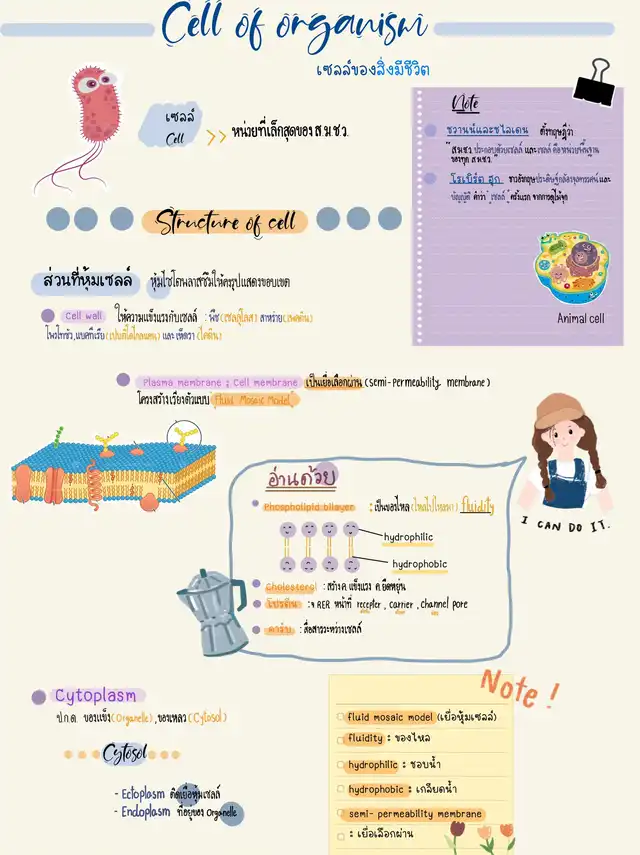 Cell of organism
เซลล์ของสิ่งมีชีวิต
เซลล์
Cell
>> หน่วยที่เล็กสุดของ ส.ม.ช.ว.
Note
ชวานน์และชไลเดน ตั้งทฤษฎีว่า
"ส.ม.ช.ว. ประกอบด้วยเซลล์ และเซลล์ คือหน่วยพื้นฐาน
ของทุก ส.ม.ช.ว."
โรเบิร์ต ฮุก ชาวอังกฤษประดิษฐ์กล้องจุลทรรศน์ และ
บัญญัติ คำว่า "เซลล์" ครั้งแรก จากการดูไม้คุก
Animal cell
Structure of cell
ส่วนที่หุ้มเซลล์ หุ้มไซโตพลาสซึมให้คงรูปแสดงขอบเขต
Cell wall ให้ความแข็งแรงกับเซลล์ : พืช (เซลลูโลส) สาหร่าย (เพคติน)
โพรไทชัว, แบคทีเรีย (เปปติโดไกลแคน) และ เห็ดรา (ไคติน)
Plasma membrane ; Cell membrane เป็นเยื่อเลือกผ่าน (semi-permeability membrane)
โครงสร้างเรียงตัวแบบ Fluid Mosaic Model
I CAN DO IT.
อ่านด้วย
Phospholipid bilayer : เป็นของไหล (ไหลไปไหลมา) fluidity
hydrophilic
hydrophobic
Cholesterol : สร้าง ค.แข็งแรง ค.ยืดหยุ่น
โปรตีน : จ RER หน้าที่ recepter, carrier, channel pore
คาร์บ : สื่อสารระหว่างเซลล์
Cytoplasm
ป.ก.ด. ของแข็ง (Organelle), ของเหลว (Cytosol)
Cytosol
- Ectoplasm ติดเยื่อหุ้มเซลล์
- Endoplasm ที่อยู่ของ Organelle
Note !
fluid mosaic model (เยื่อหุ้มเซลล์)
fluidity : ของไหล
hydrophilic : ชอบน้ำ
hydrophobic : เกลียดน้ำ
semi- permeability membrane
: เยื่อเลือกผ่าน